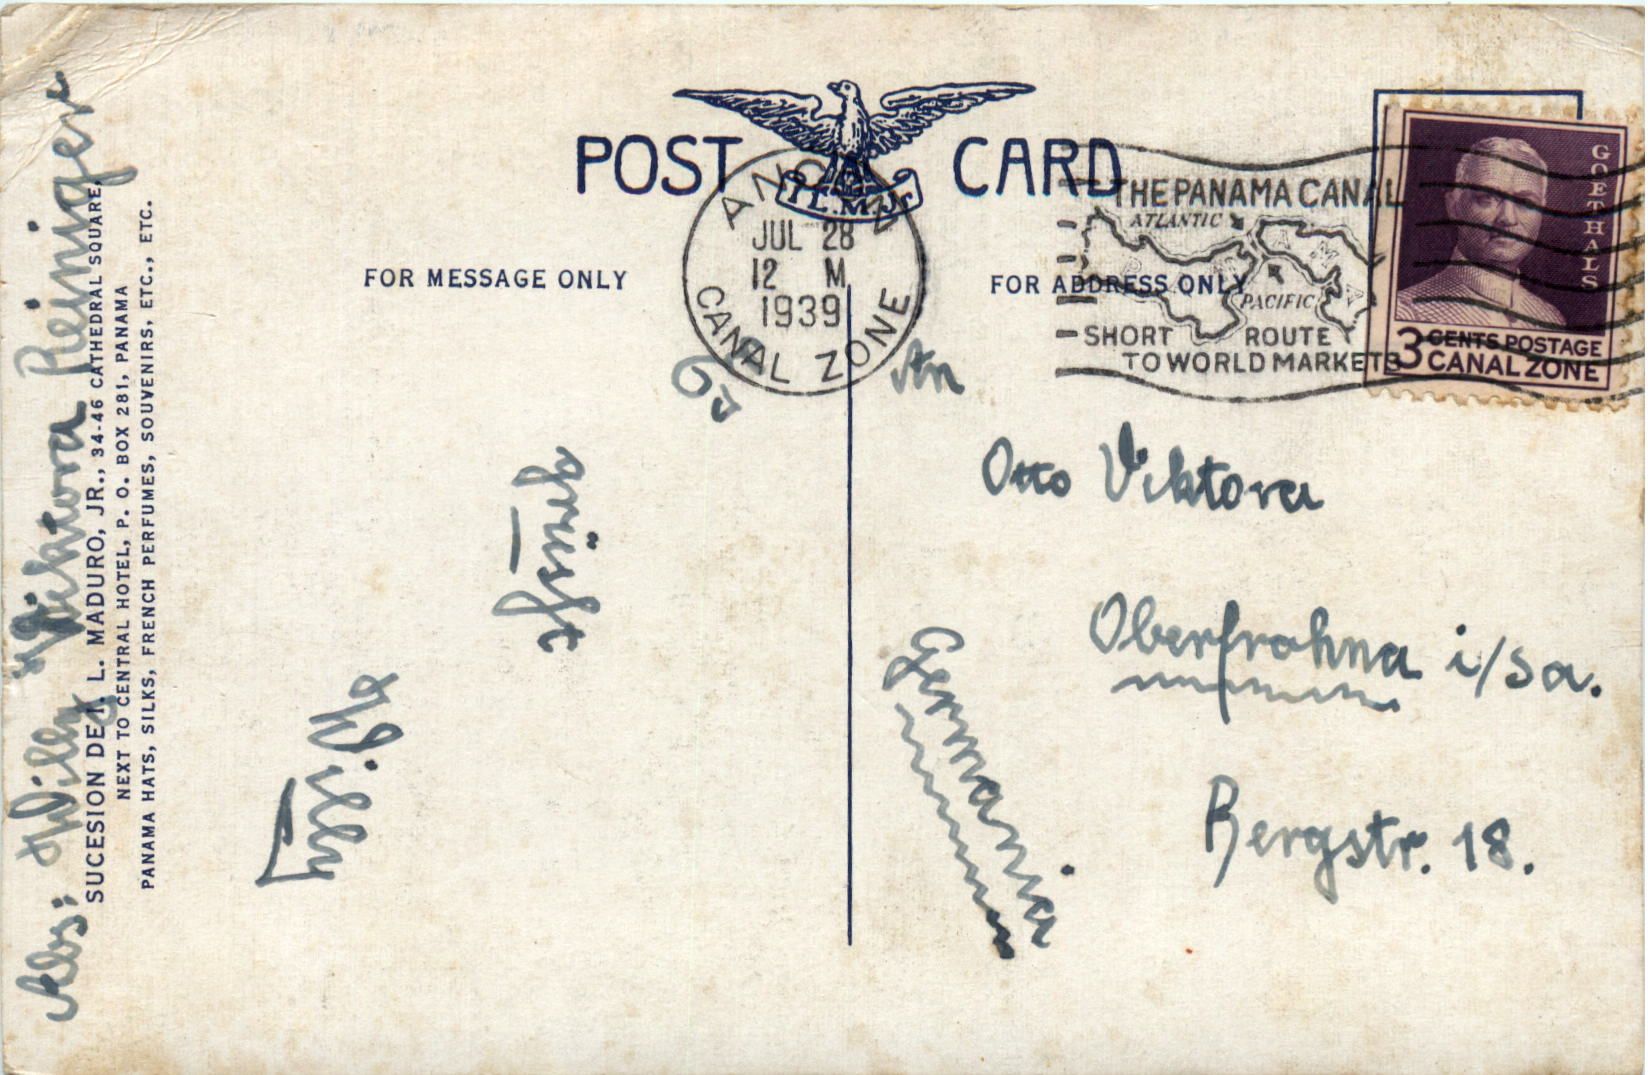 POST CARD
I.L.M.Jr
ANCON
JUL 28
12 M
1939
CANAL ZONE
THE PANAMA CANAL
ATLANTIC
PANAMA
PACIFIC
SHORT ROUTE
TO WORLD MARKETS
GOETHALS
3 CENTS POSTAGE
CANAL ZONE
FOR MESSAGE ONLY
FOR ADDRESS ONLY
An
Otto Viktora
Oberfrohna i/Sa.
Bergstr. 18.
Germania
Willy
Abs: Willy Viktora Reiniger
SUCESION DE I. L. MADURO, JR., 34-46 CATHEDRAL SQUARE,
NEXT TO CENTRAL HOTEL, P. O. BOX 281, PANAMA
PANAMA HATS, SILKS, FRENCH PERFUMES, SOUVENIRS, ETC., ETC.